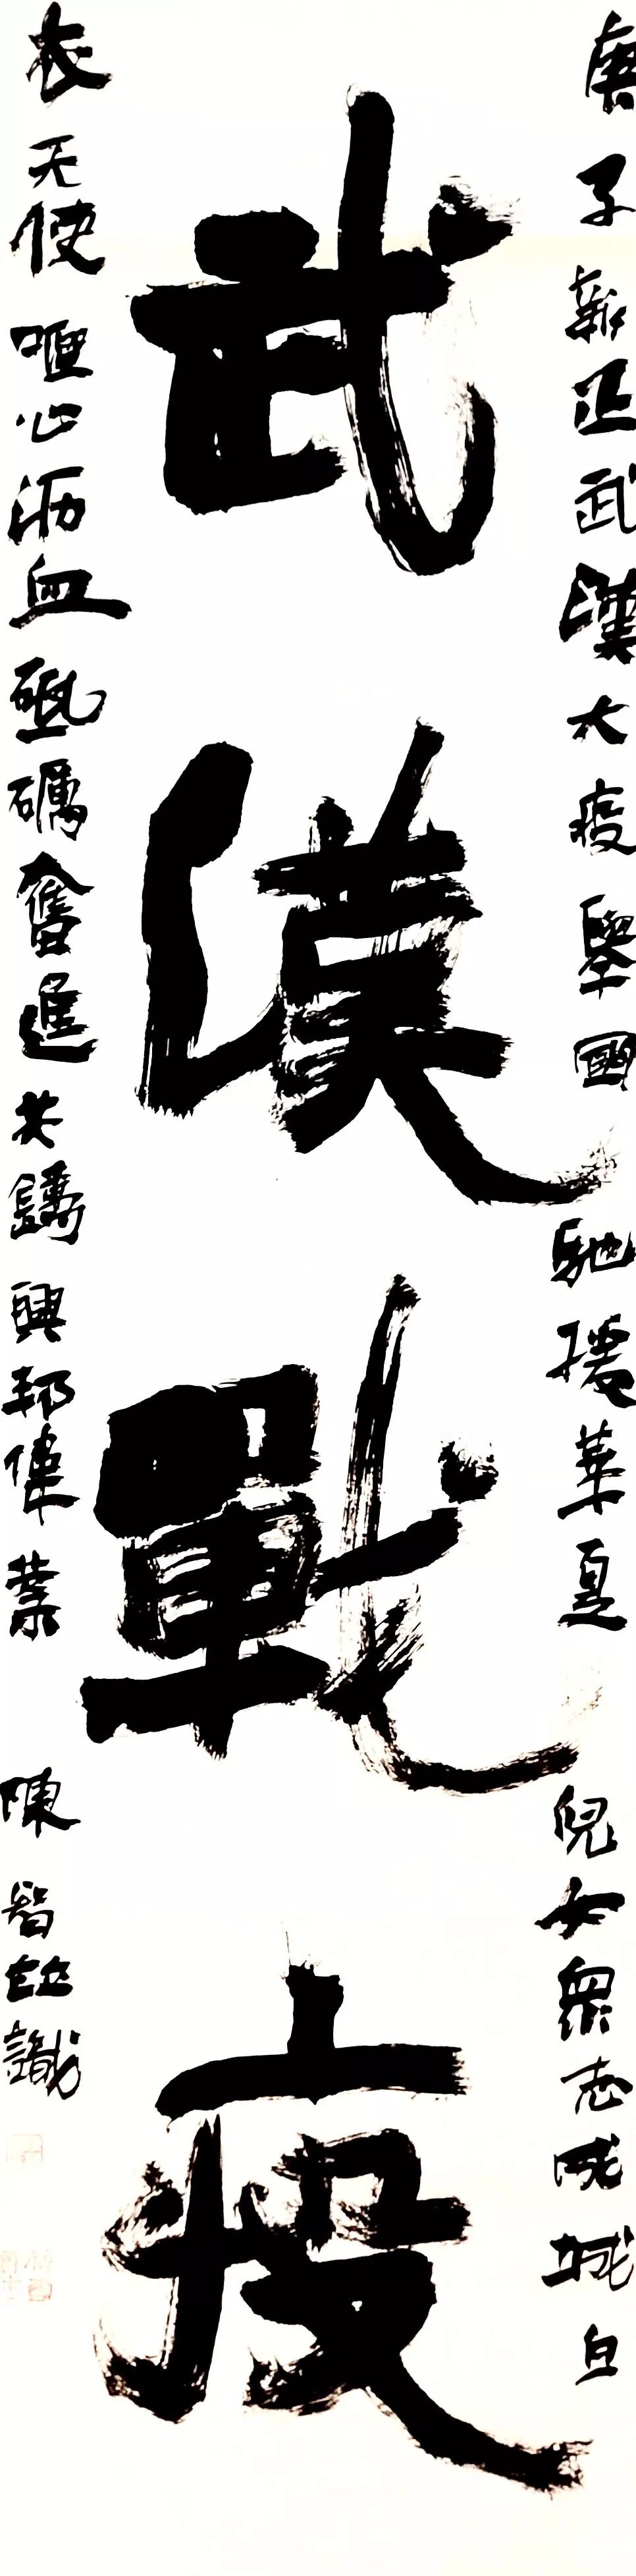 庚子新正武漢大疫舉國馳援華夏兒女眾志成城白
武漢戰疫
衣天使嘔心瀝血砥礪奮進共鑄興邦偉業 陳智 識